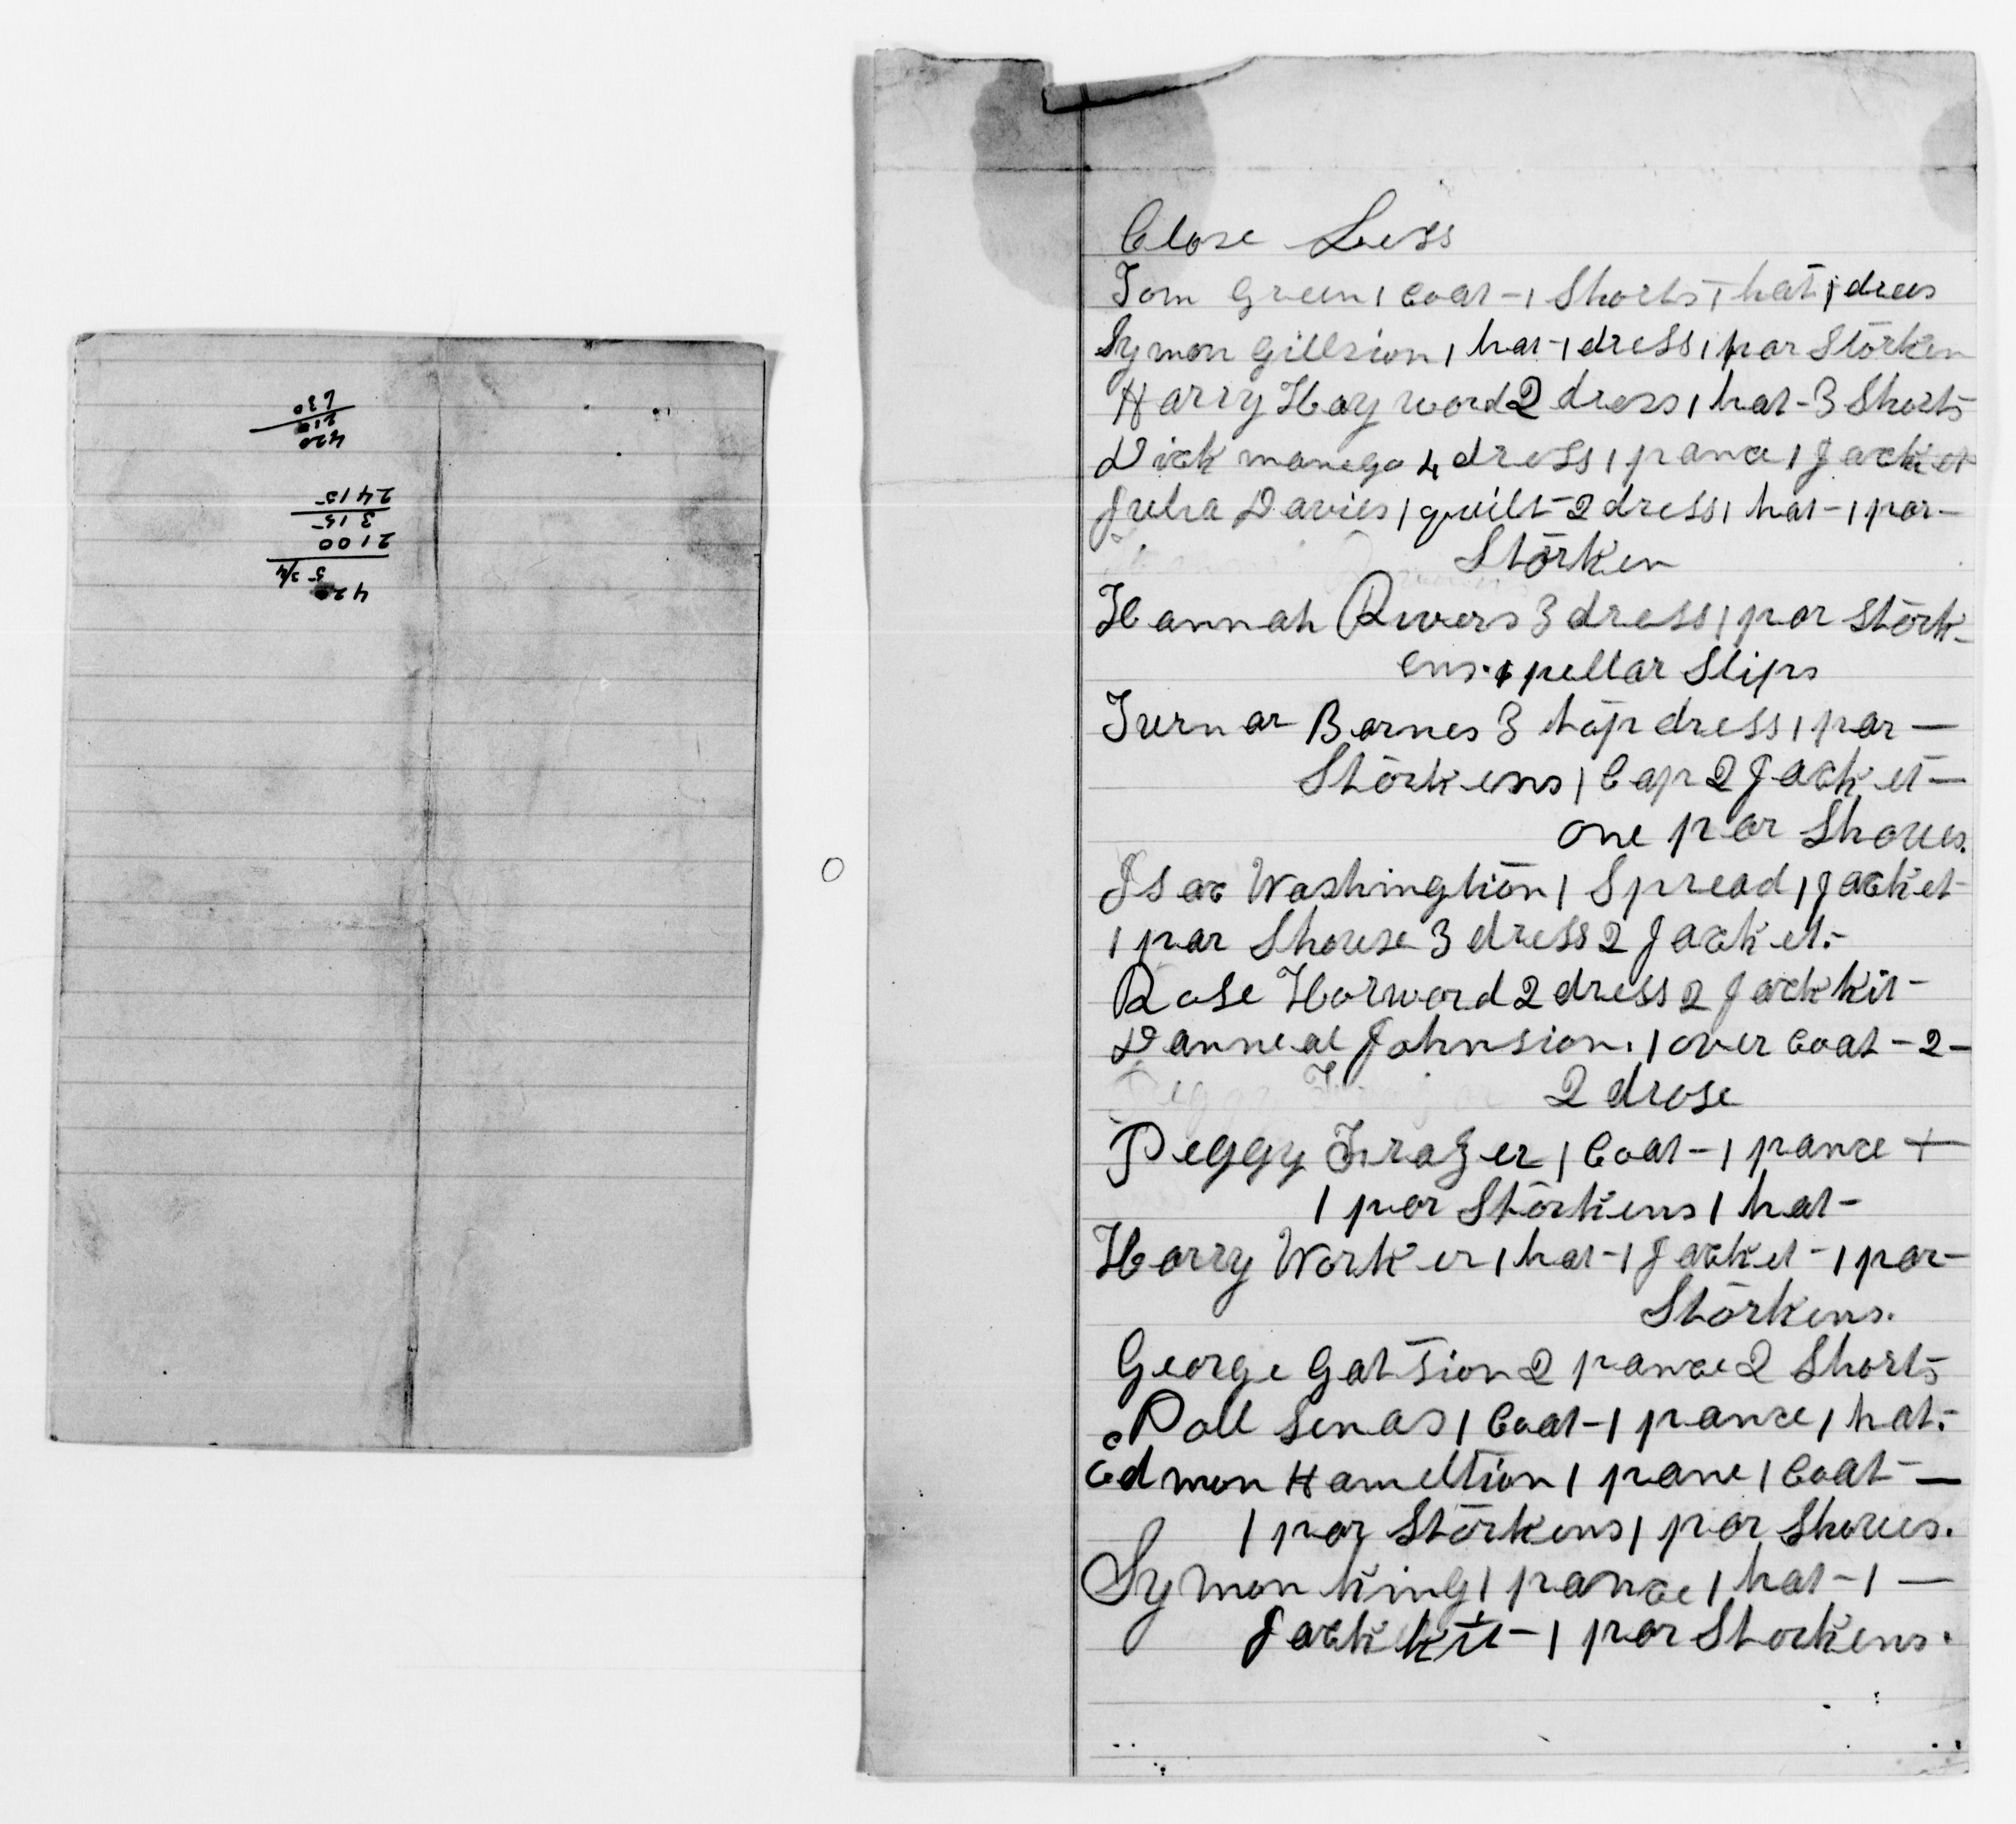 630
210
420
2415
3 15
2100
5 3/4
420
Close Liss
Tom Green 1 Coat - 1 Shorts 1 hat 1 drees
Symon Gillsion 1 hat - 1 dress 1 par Storken
Harry Hay word 2 dress 1 hat - 3 Shorts
Dick manego 4 dress 1 pance 1 Jacket
Julia Davies 1 quilt - 2 dress 1 hat - 1 par -
Storken
Hannah Rivers 3 dress 1 par Stork-
ens. 1 pellar Slips
Turn ar Barnes 3 top dress 1 par —
Storkens 1 Cap 2 Jack et —
one par Shoues.
Isac Washingtion 1 Spread 1 Jacket
1 par Shouse 3 dress 2 Jack et.-
Rose Harword 2 dress 2 Jack kit -
Danneal Johnsion. 1 over Coat - 2 -
2 drose
Peggy Frazer 1 Coat - 1 pance +
1 par Storkens 1 hat -
Harry Work er 1 hat - 1 Jacket - 1 par -
Storkens.
George Gatsion 2 pance 2 Shorts
Poll Senas 1 Coat - 1 pance 1 hat.-
Edmon Hameltion 1 pane 1 Coat —
1 par Storkens 1 par Shoues.
Symon King 1 pance 1 hat - 1 —
Jack kit - 1 par Storkens.